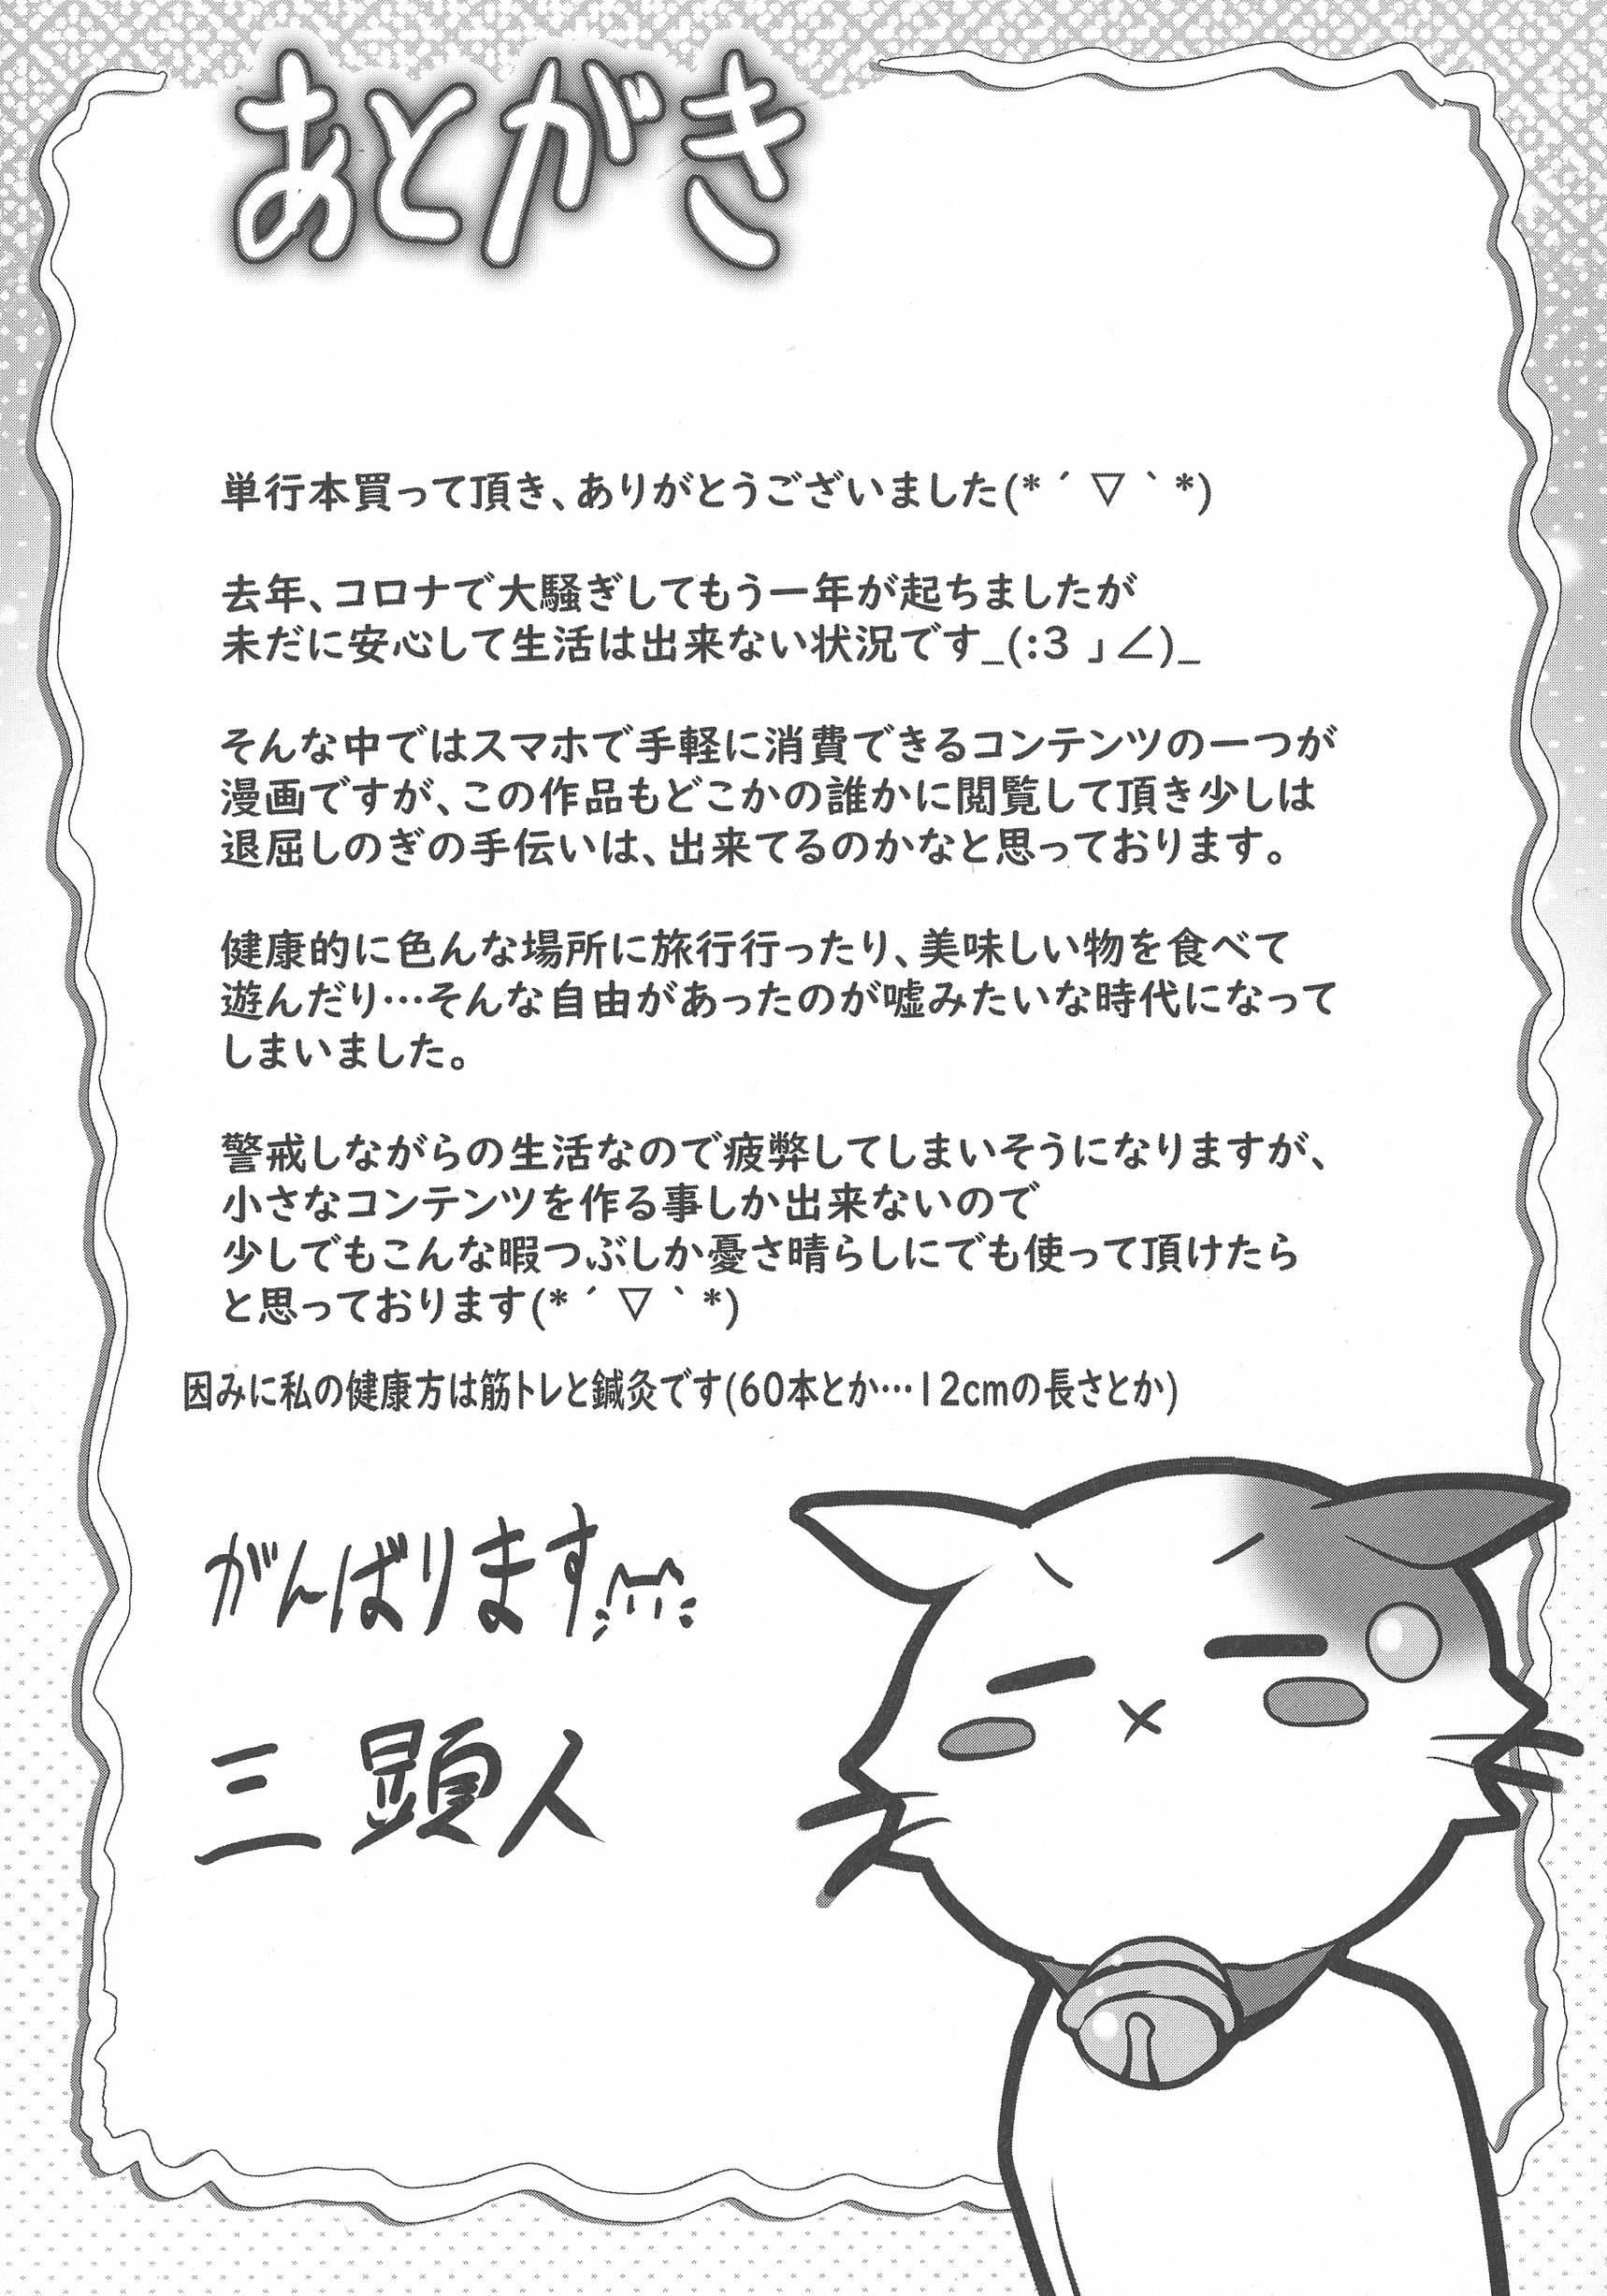 あとがき
単行本買って頂き、ありがとうございました(*´▽｀*)
去年、コロナで大騒ぎしてもう一年が起ちましたが
未だに安心して生活は出来ない状況です_(:3 」∠)_
そんな中ではスマホで手軽に消費できるコンテンツの一つが
漫画ですが、この作品もどこかの誰かに閲覧して頂き少しは
退屈しのぎの手伝いは、出来てるのかなと思っております。
健康的に色んな場所に旅行行ったり、美味しい物を食べて
遊んだり…そんな自由があったのが嘘みたいな時代になって
しまいました。
警戒しながらの生活なので疲弊してしまいそうになりますが、
小さなコンテンツを作る事しか出来ないので
少しでもこんな暇つぶしか憂さ晴らしにでも使って頂けたら
と思っております(*´▽｀*)
因みに私の健康方は筋トレと鍼灸です(60本とか…12cmの長さとか)
がんばります
三顕人